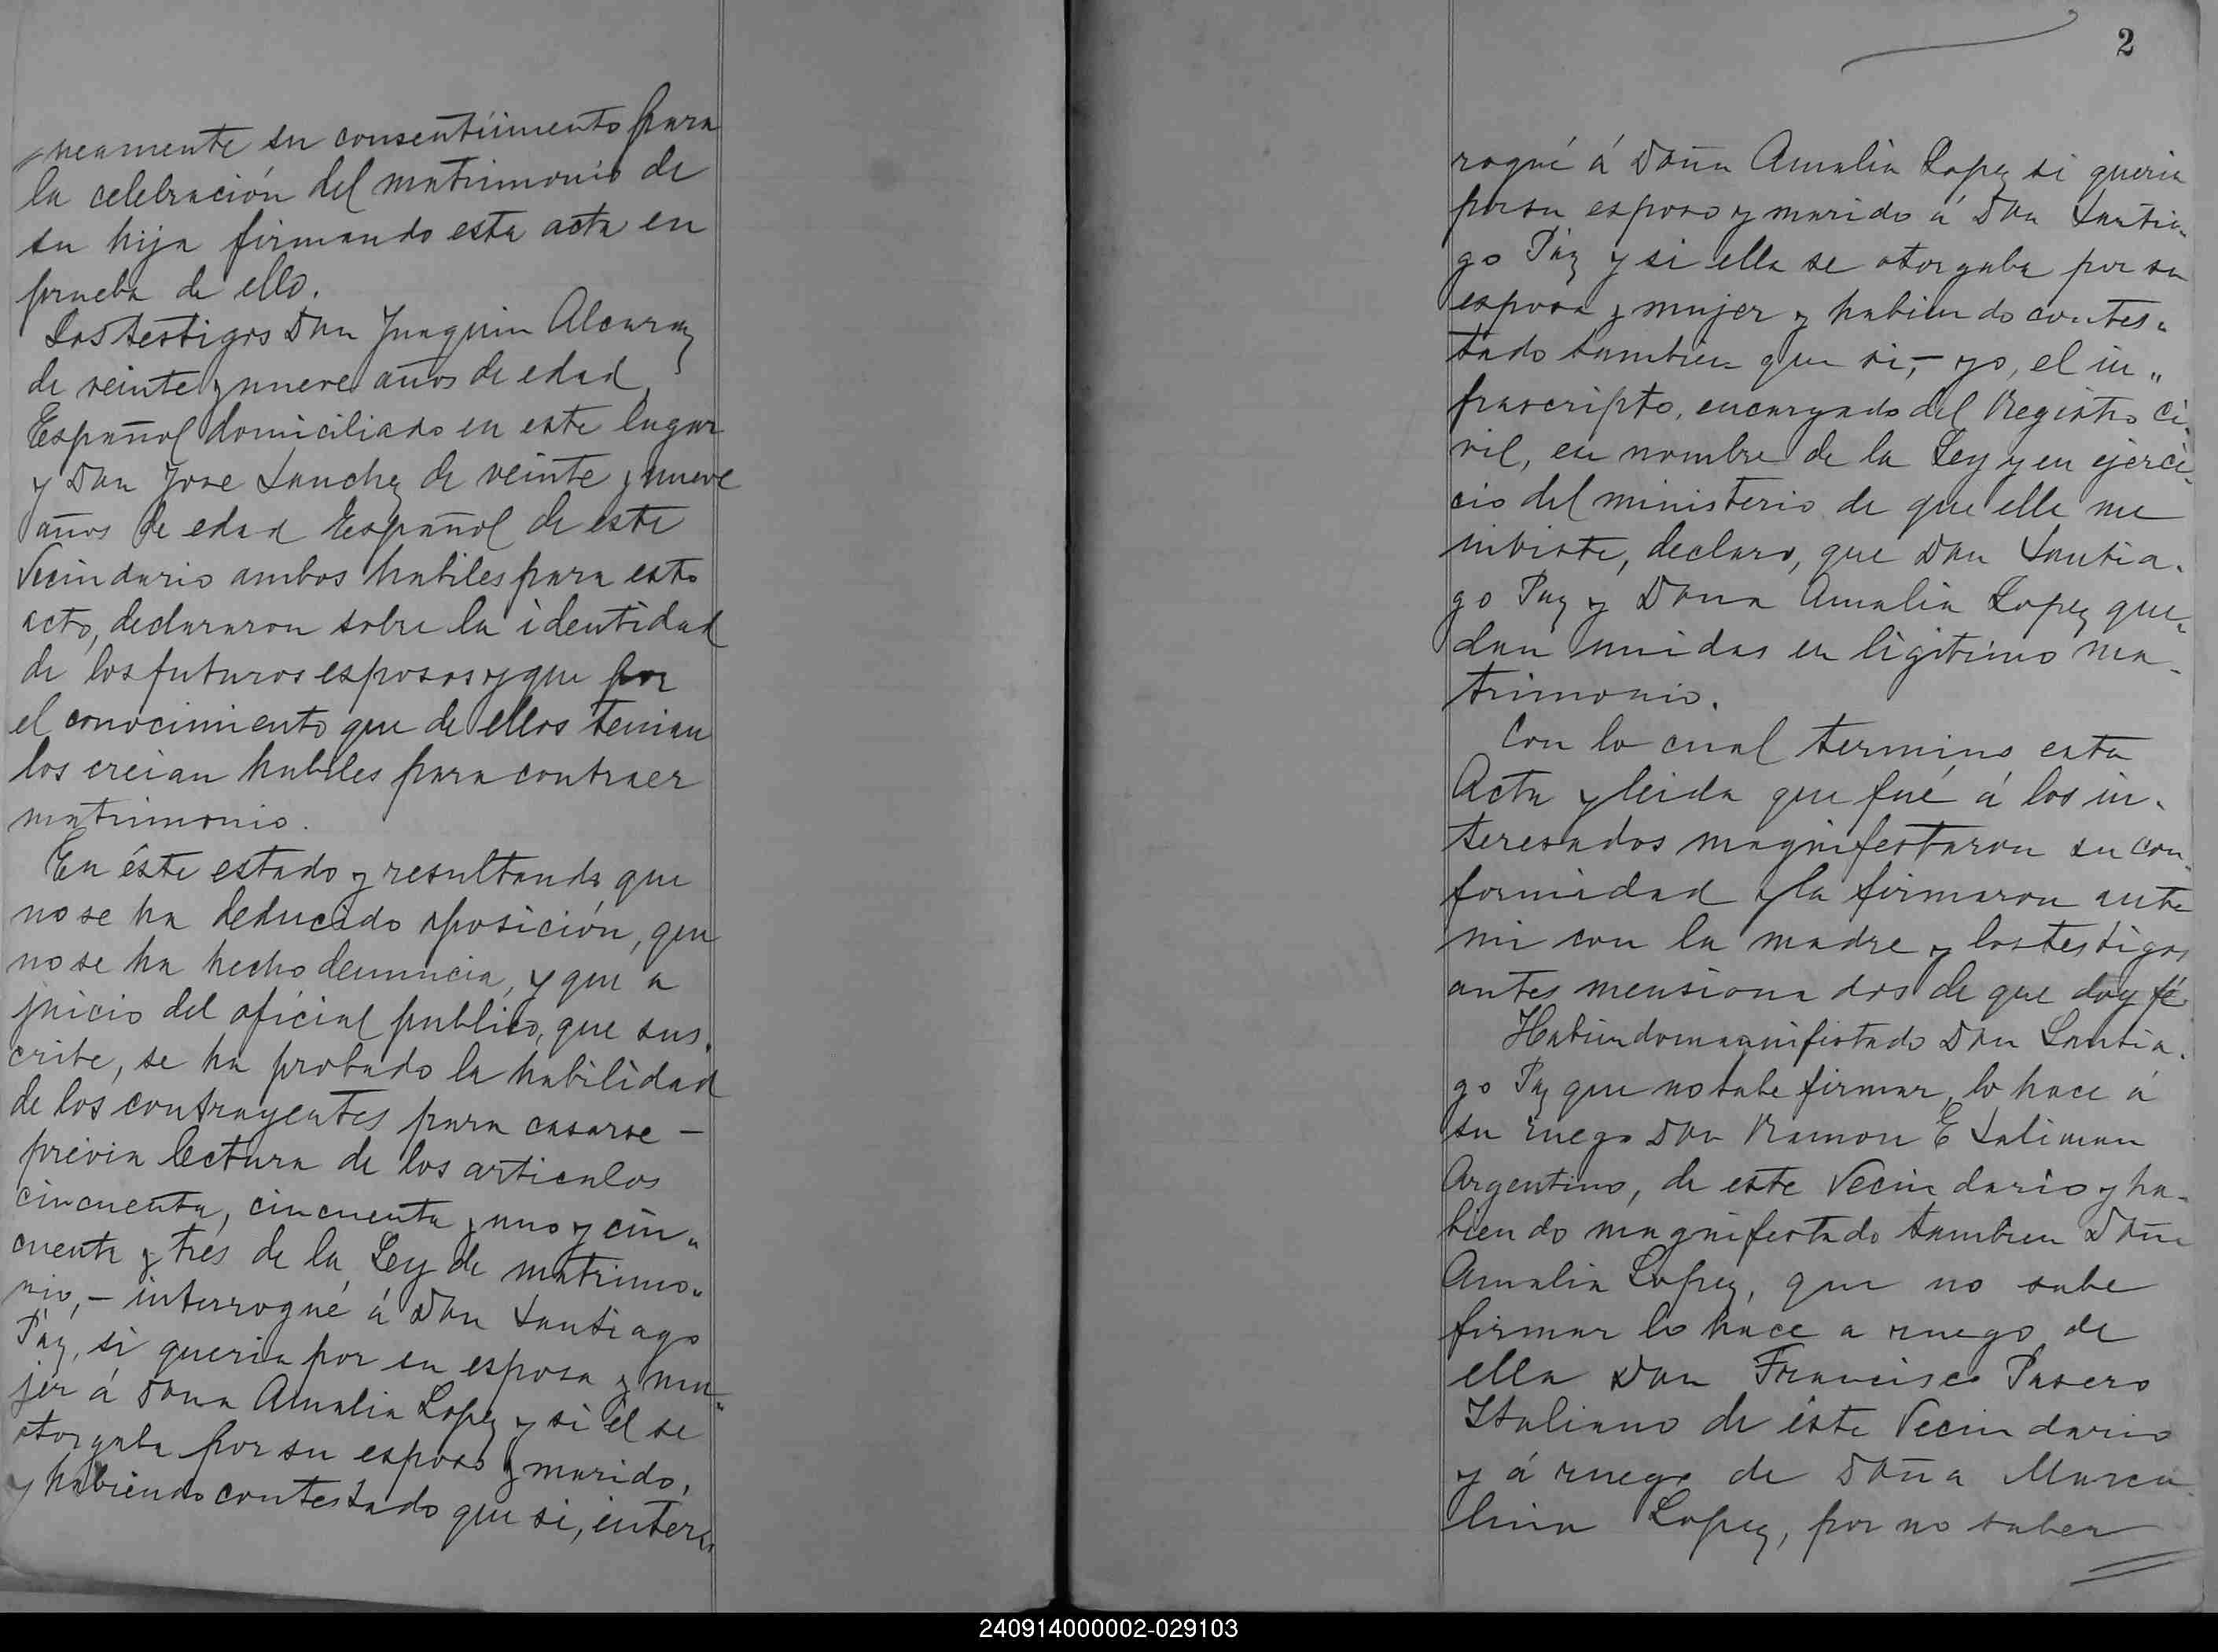 neamente su consentiimento para
la celebración del matrimonio de
su hija firmando esta acta en
prueba de ello.
Los testigos Don Juaquin Alcaraz
de veinte y nueve años de edad,
Español domiciliado en este lugar
y Don Jose Sanchez de veinte y nueve
años de edad Español de este
Vecindario ambos habiles para esto
acto, declararon sobre la identidad
de los futuros esposos y que por
el conocimiento que de ellos tenian
los creian habiles para contraer
matrimonio.
En éste estado y resultando que
no se ha deducido oposición, que
no se ha hecho denuncia, y que a
juicio del oficial publico, que sus,
cribe, se ha probado la habilidad
de los contrayentes para casarse —
previa lectura de los articulos
cincuenta, cincuenta y uno y cin„
cuenta y tres de la Ley de matrimo„
nio, — interrogué á Don Santiago
Páz, si queria por su esposa y mu„
jer á Doña Amalia Lopez y si él se
otorgaba por su esposo y marido,
y habiendo contestado que si, inter„
2
rogué á Doña Amalia Lopez si queria
por su esposo y marido á Don Santia„
go Páz y si ella se otorgaba por su
esposa y mujer y habiendo contes„
tado tambien que si, — yo, el in„
frascripto, encargado del Registro Ci„
vil, en nombre de la Ley y en ejerci„
cio del ministerio de que ella me
inviste, declaro, que Don Santia„
go Paz y Dona Amalia Lopez que„
dan unidas en ligitimo ma„
trimonio.
Con lo cual termino esta
Acta y leida que fué á los in„
teresados magnifestaron su con„
formidad y la firmaron ante
mi con la madre y los testigos
antes mensionados de que doy fé
Habiendo magnifistado Don Santia„
go Paz que no sabe firmar, lo hace á
su ruego Don Ramon E Saliman
Argentino, de este Vecindario y ha„
biendo magnifestado tambien Doña
Amalia Lopez, que no sabe
firmar lo hace a ruego de
ella Don Francisco Pasero
Italiano de éste Vecindario
y á ruego de Doña Marce
lina Lopez, por no saber
240914000002-029103